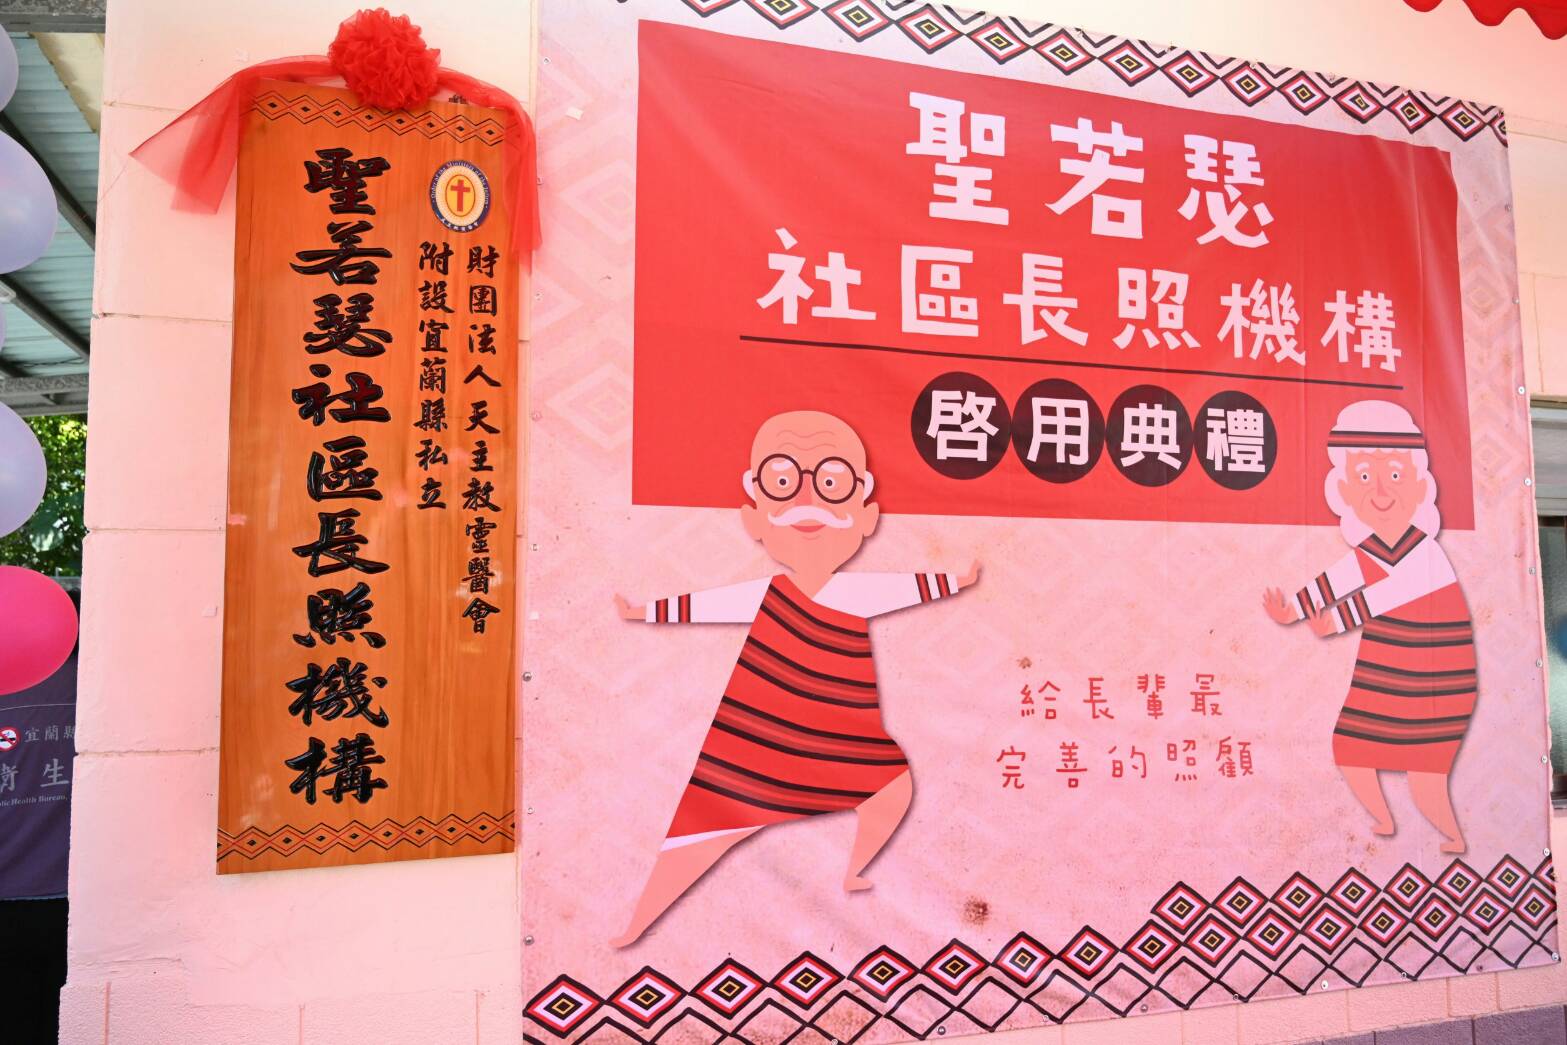 聖若瑟社區長照機構
財團法人天主教靈醫會
附設宜蘭縣私立
聖若瑟
社區長照機構
啓用典禮
給長輩最
完善的照顧
宜蘭縣
衛生
Health Bureau,